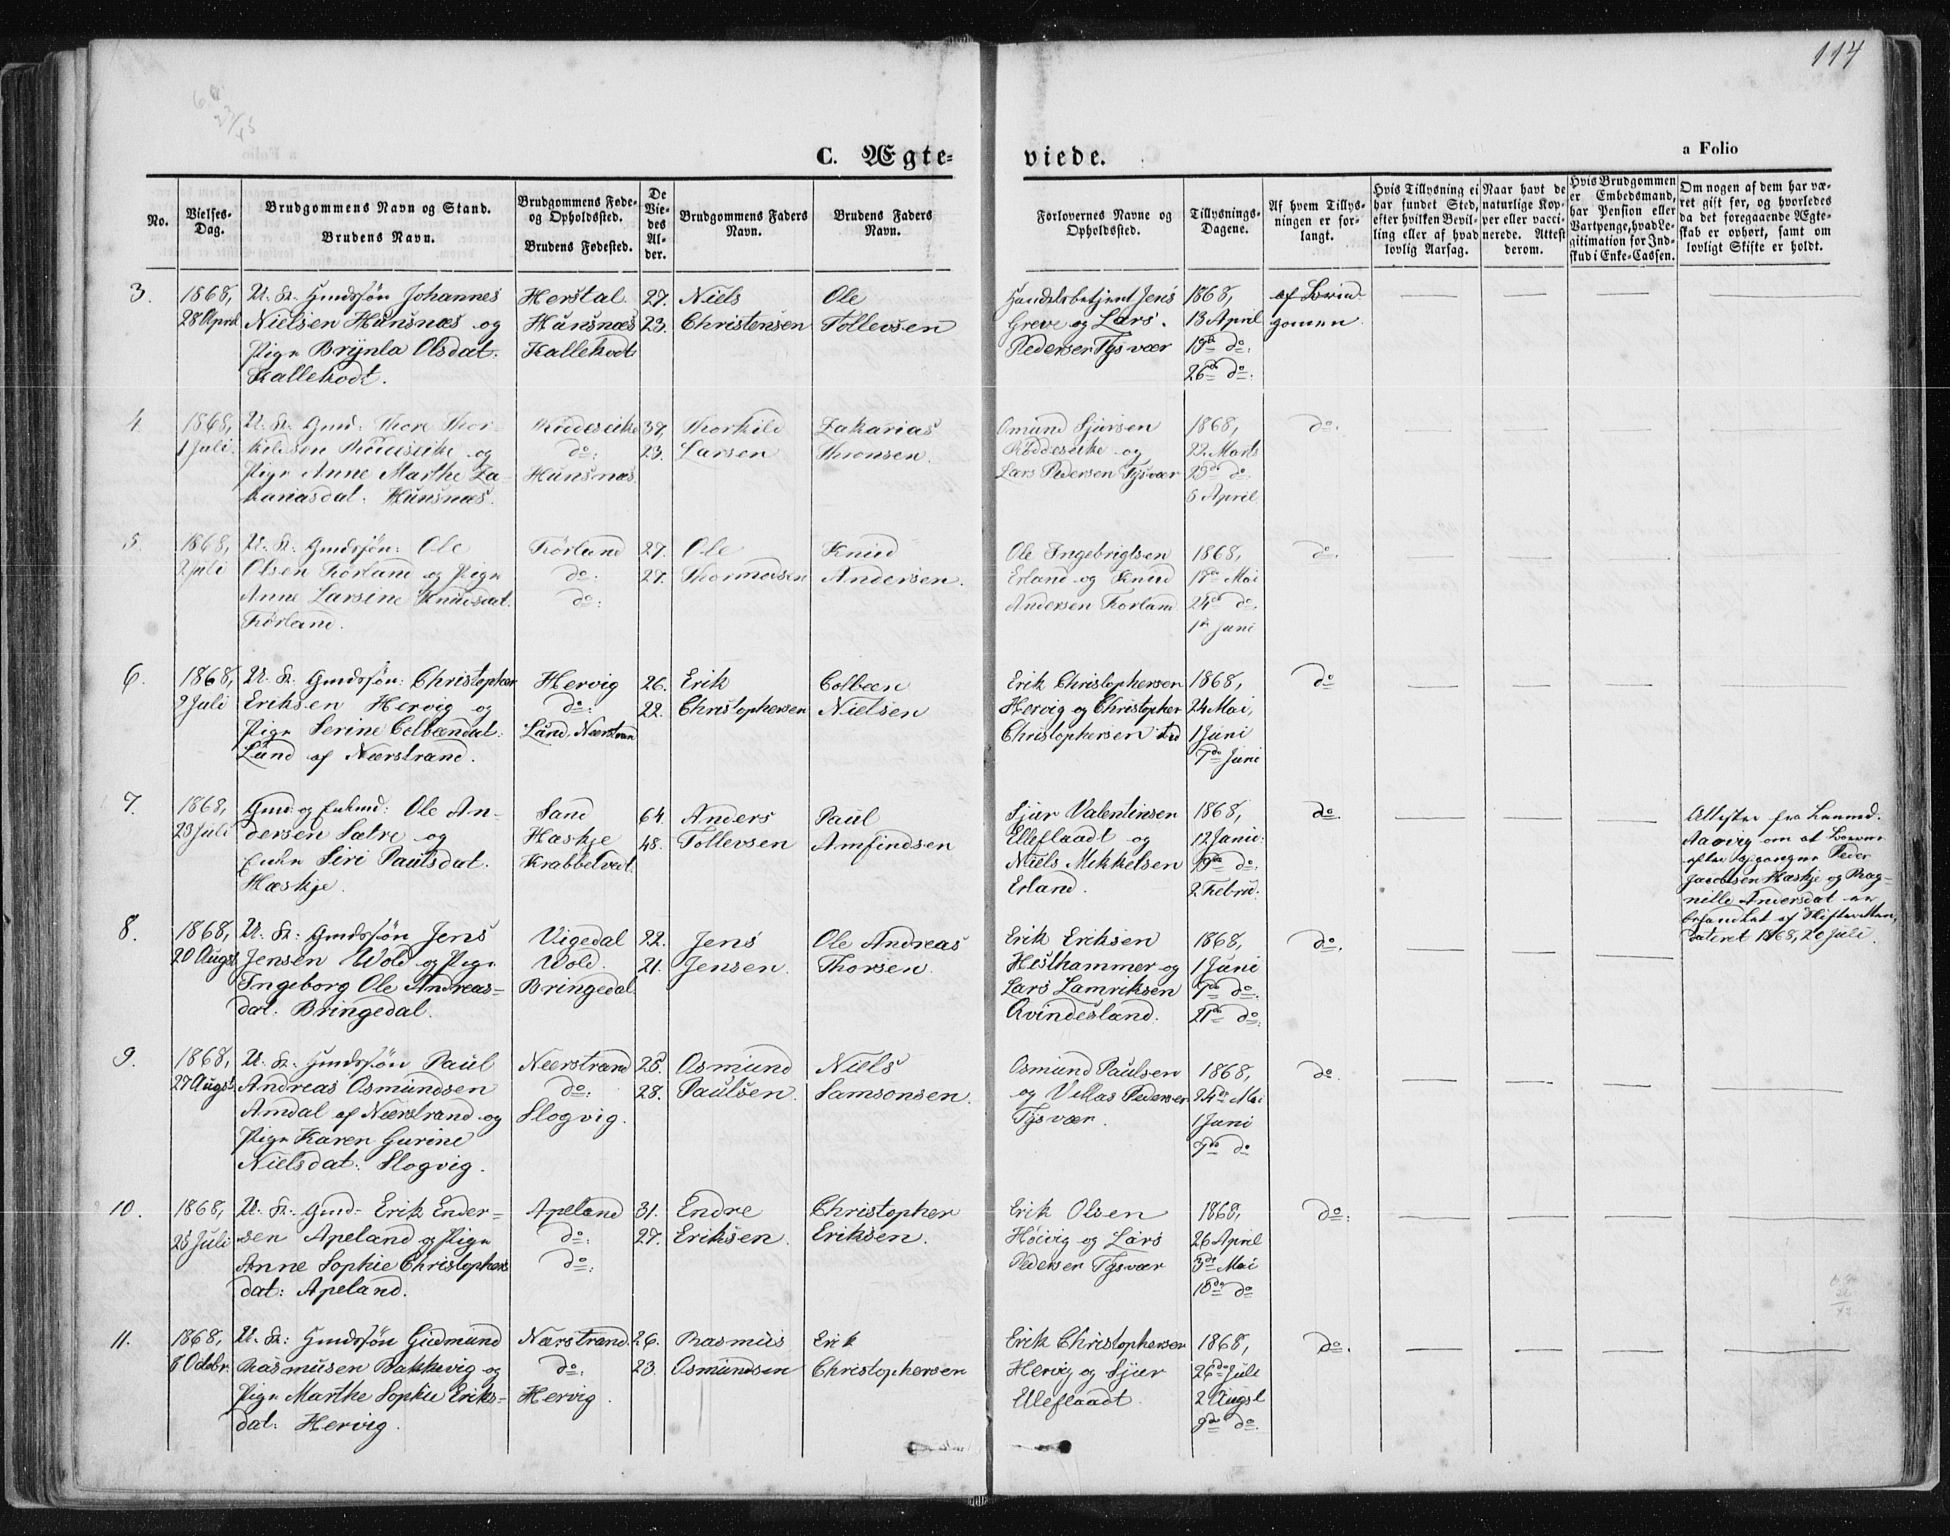 114
C. Ægte-
viede.
a Folio
No.
Vielses-
Dag.
Brudgommens Navn og Stand.
Brudens Navn.
Brudgommens Føde-
og Opholdssted.
Brudens Fødested.
De
Vie-
des
Al-
der.
Brudgommens Faders
Navn.
Brudens Faders
Navn.
Forlovernes Navne og
Opholdssted.
Tillysnings-
Dagene.
Af hvem Tillys-
ningen er for-
langt.
Hvis Tillysning ei
har fundet Sted,
efter hvilken Bevil-
ling eller af hvad
lovlig Aarsag.
Naar havt de
naturlige Kop-
per eller vacci-
nerede. Attest
derom.
Hvis Brudgommen
er Embedsmand,
har Pension eller
Vartpenge, hvad Le-
gitimation for Ind-
skud i Enke-Cassen.
Om nogen af dem har væ-
ret gift før, og hvorledes
da det foregaaende Ægte-
skab er ophørt, samt om
lovligt Skifte er holdt.
3.
1868,
28 April
U. K. Gmdssøn Johannes
Nielsen Hunsnæs og
Pige Brynla Olsdat.
Kallekodt.
Herstal
Hunsnæs
Kallekodt
27.
23.
Niels
Christensen
Ole
Tollevsen
Handelsbetjent Jens
Greve og Lars
Pedersen Tysvær
1868,
13 April
19de do:
26de do:
af Brud-
gommen
4
1868,
1 Juli
U. K. Gmd. Thore Thor-
kildsen og
Pige Anne Marthe Za-
kariasdat: Hunsnæs.
do:
Hunsnæs
37,
23.
Thorkild
Larsen
Zakarias
Thronsen.
Omund Sjursen
og
Lars Pedersen Tysvær
1868,
22. Marts
29de do
6 April
do.
5.
1868,
2 Juli
U. K. Gmdssøn: Ole
Olsen Førland og Pige
Anne Larsine Knudsdat.
Førland.
Førland
do:
do:
27.
27.
Ole
Thormodsen
Knud
Andersen.
Ole Ingebrigtsen
Erland og Knud
Andersen Førland
1868,
17de Mai
24de do.
1de Juni
do.
6.
1868,
9 Juli
U. K. Gmdssøn: Christopher
Eriksen Hervig og
Pige Serine Colbændat.
Lund af Nærstrand.
Hervig
do:
Lund, Nærstran
26.
22.
Erik
Christophersen
Colbeen
Nielsen
Erik Christophersen
Hervig og Christopher
Christophersen
1868,
24 Mai,
1 Juni
7de Juni
do
7.
1868,
23 Juli
Gmd og Enkmd: Ole An-
dersen Sætre og
Enke Siri Paulsdat.
Hæskje.
Sand
Hæskje
Krabbetvedt.
64
48.
Anders
Tollevsen
Paul
Amfindsen
Sjur Valentinsen
Elleflaadt og
Niels Mikkelsen
Erland.
1868,
12 Janu:
19de do:
2 Februr.
do.
Attester fra Lensmd.
Aaavig om at Boerne
efter Jacobsen Hæskje og Rag-
nille Andersdat er
behandlet af Skifteretten,
dateret 1868, 20 Juli.
8.
1868,
20 Augs
U. K: Gmdssøn Jens
Jensen Wold og Pige
Ingeborg Ole Andreas-
dat: Bringedal.
Vigedal
Wold.
Bringedal.
22.
21.
Jens
Jensen.
Ole Andreas
Thorsen.
Erik Eriksen
Hesthammer og
Lars Lamriksen
Qvindesland.
1868,
1 Juni
7de do:
21de do:
do.
9.
1868,
27 Augst
U. K. Gmdssøn Paul
Andreas Osmundsen
Amdal af Nærstrand og
Pige Karen Gurine
Nielsdat: Slogvig.
Nærstrand
do:
Slogvig.
25.
28.
Osmund
Paulsen.
Niels
Samsonsen.
Osmund Paulsen
og Villas Pedersen
Tysvær.
1868,
24de Mai
1 Juni
7de do
do.
10.
1868,
25 Juli
U. K. Gmd: Erik Ender-
sen Apeland og Pige
Anne Sophie Christophers
dat: Apeland.
Apeland
do:
do:
31.
27.
Endre
Eriksen.
Christopher
Eriksen.
Erik Olsen
Høivig og Lars
Pedersen Tysvær
1868,
26 April
3de Mai
10de do
do:
11.
1868,
6 Octobr.
U. K: Gmdssøn Gudmund
Rasmusen Bakkevig og
Pige Marthe Sophie Eriks-
dat: Hervig.
Nærstrand.
do:
Hervig.
26.
23.
Rasmus
Osmundsen
Erik
Christophersen
Erik Christophersen
Hervig og Sjur
Elleflaadt.
1868,
26de Juli
2 Augst
9de do.
do.